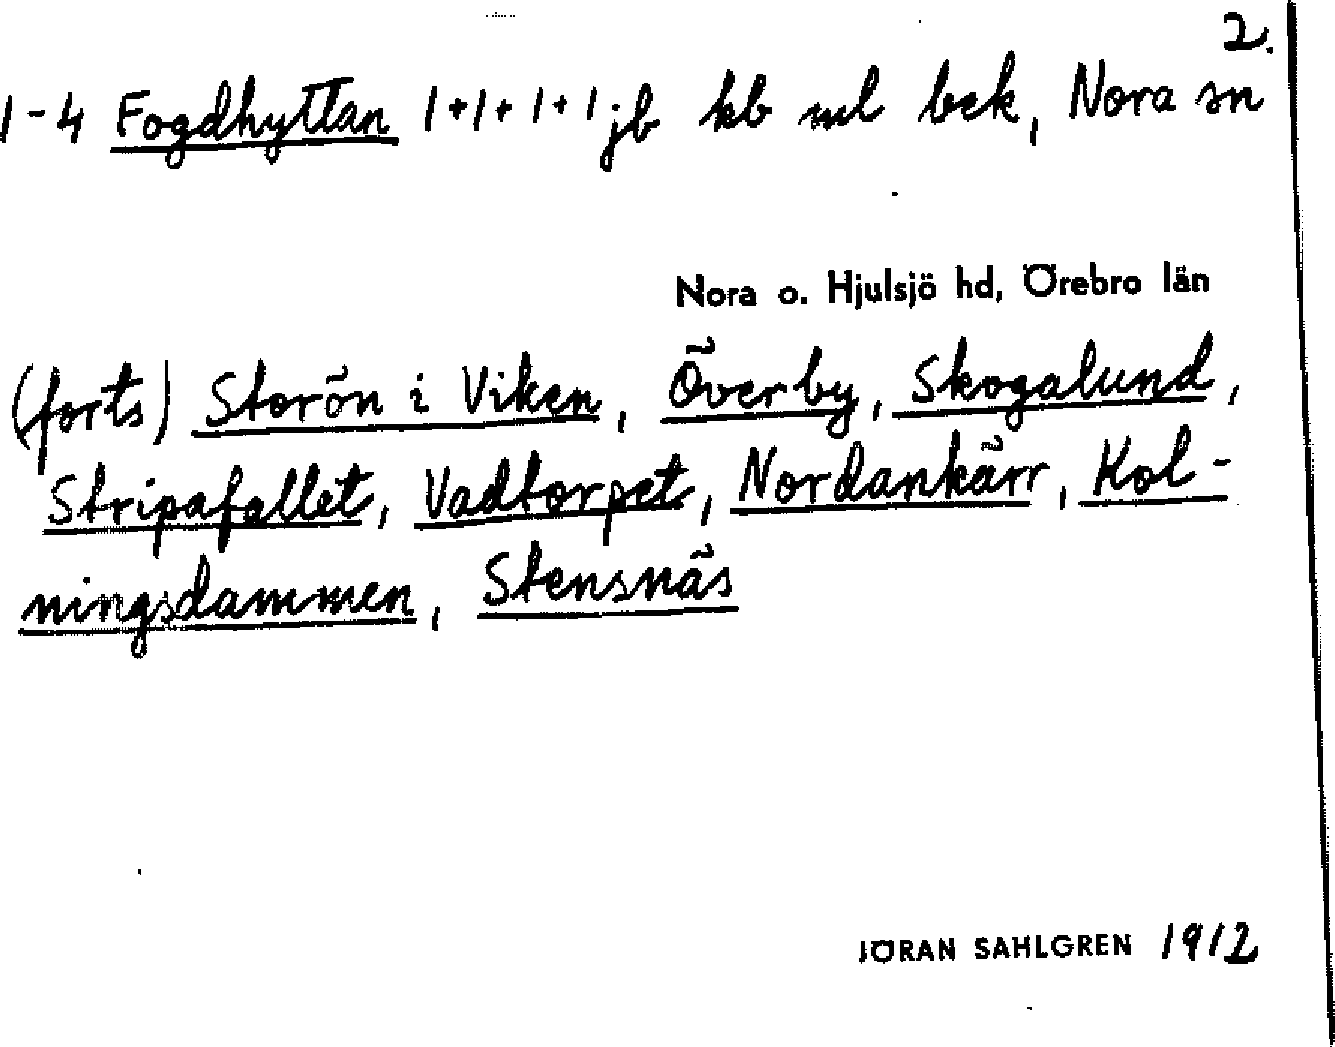 2.
1-4 Fogdhyttan 1+1+1+1 jb kb ml bek, Nora sn
Nora o. Hjulsjö hd, Örebro län
(forts) Storön i Viken, Överby, Skogalund,
Stripafallet, Vadtorpet, Nordankärr, Kol-
ningsdammen, Stensnäs
JÖRAN SAHLGREN 1912